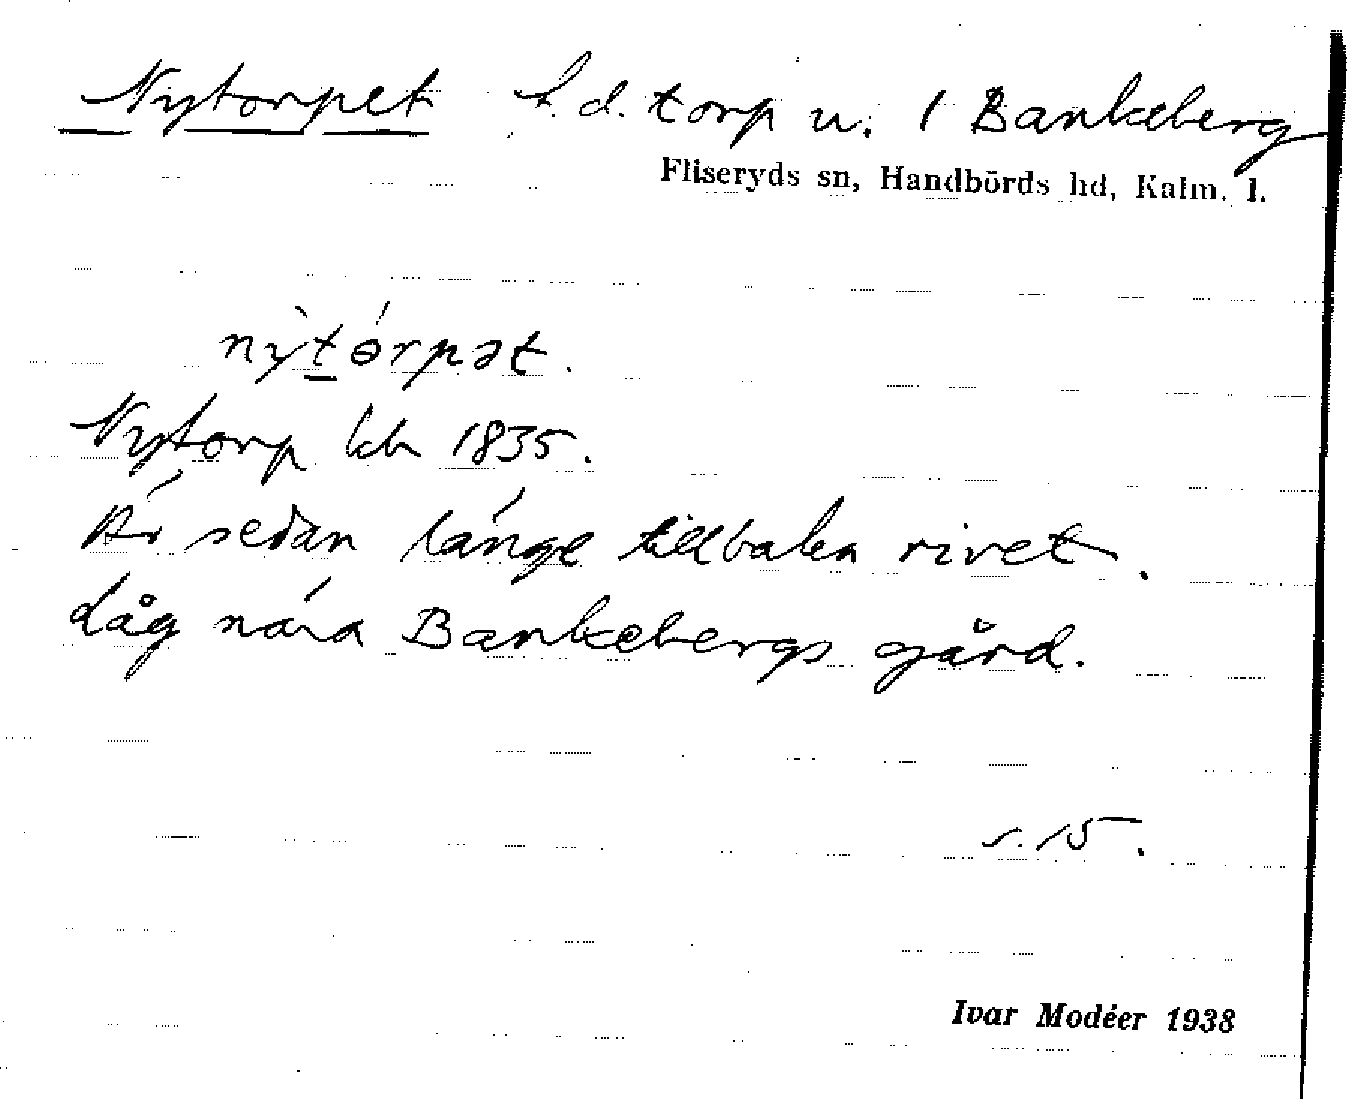 Nytorpet f.d. torp u. 1 Bankeberg
Fliseryds sn, Handbörds hd, Kalm. l.
nỳtǿrpət.
Nytorp kb 1835.
Är sedan länge tillbaka rivet.
Låg nära Bankebergs gård.
s. 15.
Ivar Modéer 1938